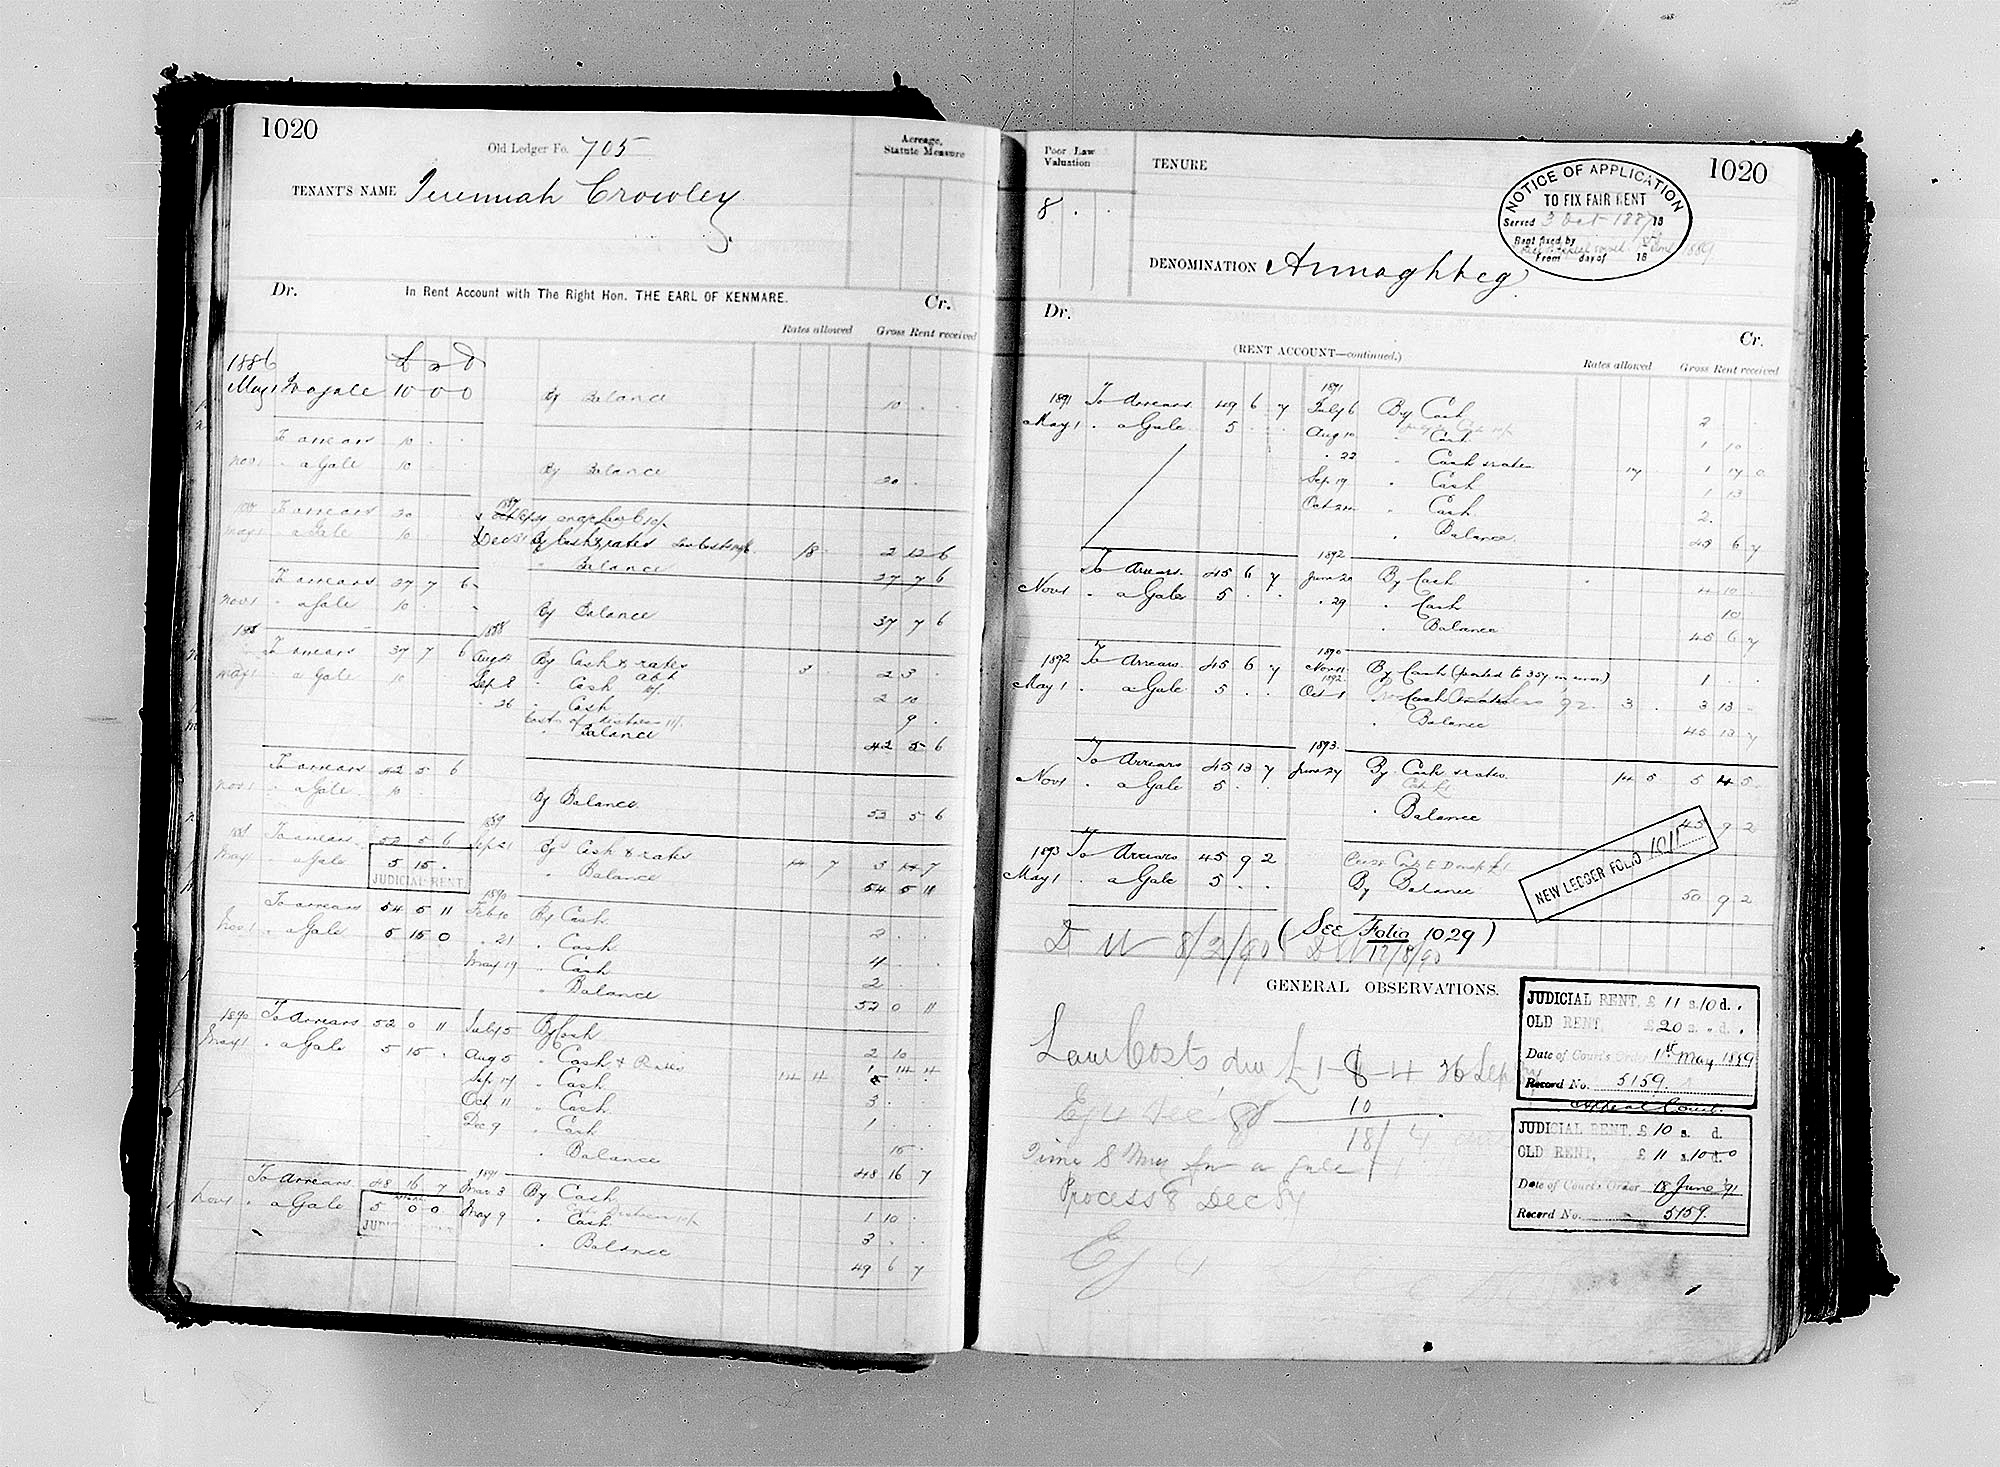 1020
Old Ledger Fo. 705
Acreage,
Statute Measure
TENANT'S NAME Jeremiah Crowley
Dr. In Rent Account with The Right Hon. THE EARL OF KENMARE. Cr.
Rates allowed Gross Rent received
1886 £ s d
May 1 To a gale 10 0 0 By Balance 10 . .
To arrears 10 . .
Nov 1 " a Gale 10 By Balance 20 .
To arrears 20 1887
May 1 a Gale 10 Dec By Cash & rates 18 2 12 6
" Balance 27 7 6
To arrears 27 7 6
Nov 1 " a Gale 10 By Balance 37 7 6
1888 1888
To arrears 37 7 6 Aug 4 By Cash & rates 3 2 3
May 1 a Gale 10 Sep 8 " Cash 2 10
" 26 " Cash 9 .
Costs of Distress 11/.
" Balance 42 5 6
To arrears 42 5 6
Nov 1 " a Gale 10 By Balance 52 5 6
1889
To arrears 52 5 6 Sep 21 By Cash & rates 14 7 3 14 7
May 1 " a Gale 5 15 . " Balance 54 5 11
JUDICIAL RENT
1890
To arrears 54 5 11 Feb 10 By Cash 2 . .
Nov 1 " a Gale 5 15 0 " 21 " Cash 4
May 19 " Cash 2
" Balance 52 0 11
1890 To Arrears 52 0 11 July 5 By Cash 2 10
May 1 " a Gale 5 15 . Aug 5 " Cash & Rates 14 4 1 14 4
Sep 17 " Cash
Oct 11 " Cash 3 . .
Dec 9 " Cash 1 . .
" Balance 48 16 7
1891
To Arrears 48 16 7 Mar 3 By Cash 1 10
Nov 1 " a Gale 5 0 0 May 9 " Cash 3 . .
" Balance 49 6 7
Poor Law
Valuation
TENURE
1020
8 . .
NOTICE OF APPLICATION
TO FIX FAIR RENT
Served 3 Oct 1887 18
Rent fixed by
From day of 18
DENOMINATION Annaghbeg
Dr. Cr.
(RENT ACCOUNT—continued.)
Rates allowed Gross Rent received
1891
1891 To Arrears 49 6 7 July 6 By Cash 2
May 1 " a Gale 5 . . Aug 10 " Cash 1 10
" 22 " Cash & rates 17 1 17 0
Sep 19 " Cash 1 13
Oct " Cash 2.
" Balance 45 6 7
1892
To Arrears 45 6 7 June 20 By Cash 4 10
Nov 1 " a Gale 5 . . " 29 " Cash 10
" Balance 45 6 7
1890
1892 To Arrears 45 6 7 Nov 11 By Cash (posted to 357 in error) 1 . .
1892
May 1 " a Gale 5 . . Oct 1 3 . 3 13
" Balance 45 13 7
1893
To Arrears 45 13 7 June 27 By Cash & rates 14 5 5 4 5
Nov 1 " a Gale 5 . .
" Balance 45 9 2
NEW LEDGER FOLIO 1011
1893 To Arrears 45 9 2
May 1 " a Gale 5 . . By Balance 50 9 2
D W 8/2/90 (SEE Folio 1029)
DW 12/8/90
GENERAL OBSERVATIONS.
Law Costs due £1-8-4 26 Sep
10
18/4
Process 8 Dec 87
Ej
JUDICIAL RENT, £ 11 s. 10 d. .
OLD RENT, £20 s. . d. .
Date of Court's Order 1st May 1889
Record No. 5159.
Appeal Court.
JUDICIAL RENT, £ 10 s. d.
OLD RENT, £ 11 s. 10 d. 0
Date of Court's Order 18 June 91
Record No. 5159.